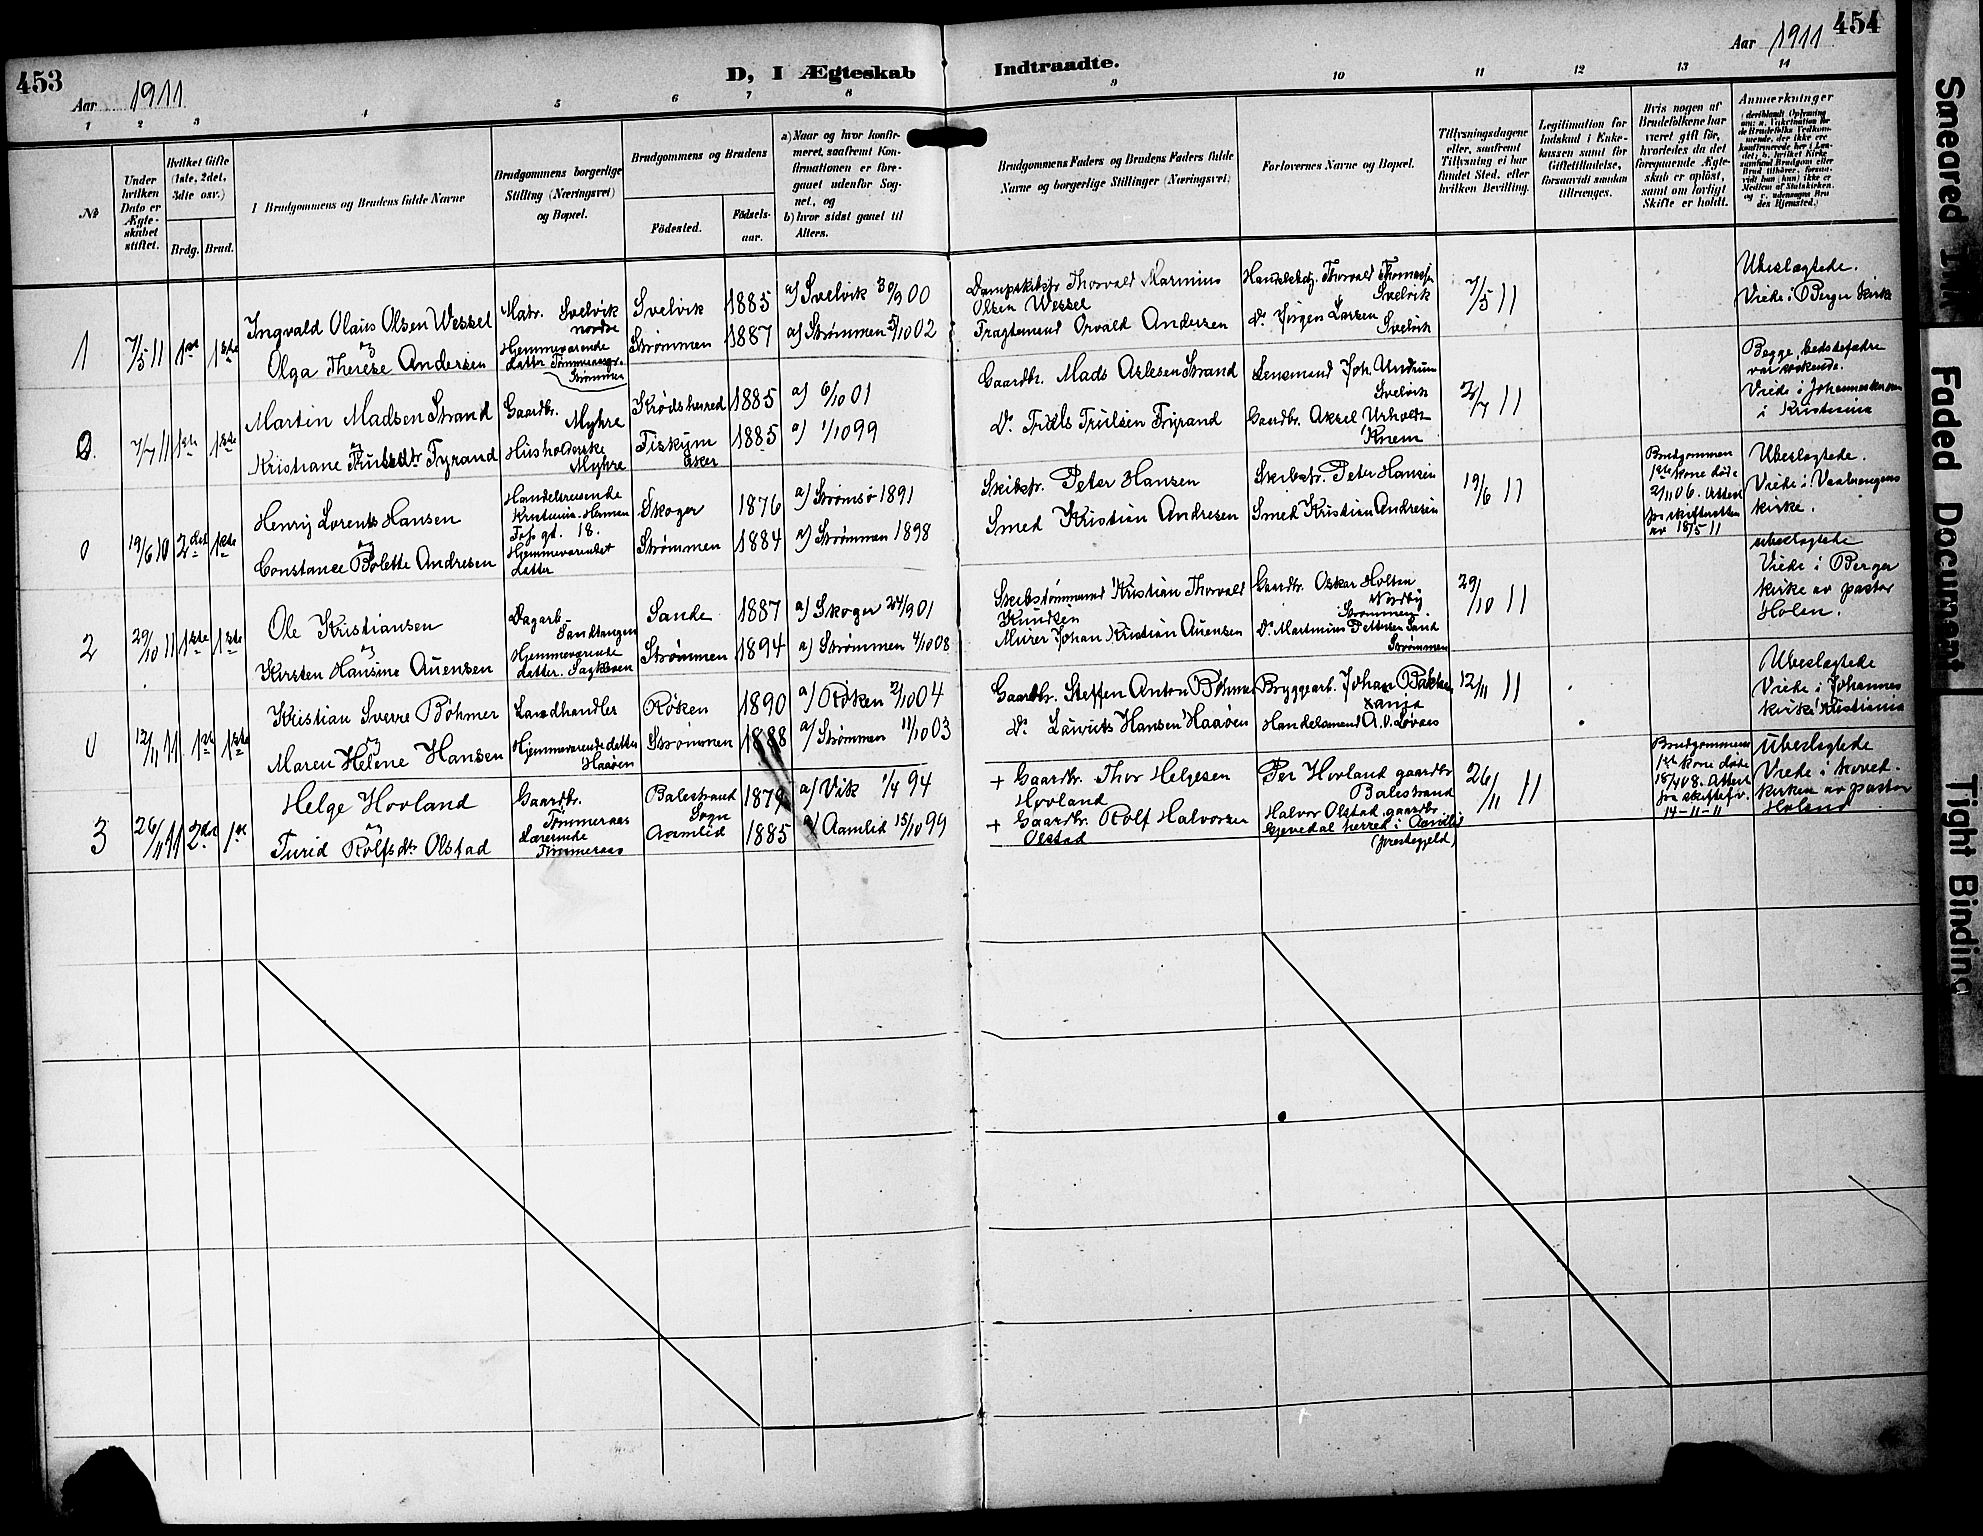 453
Aar 1911
D, I Ægteskab Indtraadte.
Aar 1911
454
1 2 3 4 5 6 7 8 9 10 11 12 13 14
№
Under hvilken Dato er Ægteskabet stiftet.
Hvilket Gifte (1ste, 2det, 3die osv.)
Brdg. Brud.
I Brudgommens og Brudens fulde Navne
Brudgommens borgerlige Stilling (Næringsvei) og Bopæl.
Brudgommens og Brudens
Fødested. Fødsels-aar.
a) Naar og hvor konfirmeret, saafremt Konfirmationen er foregaaet udenfor Sognet, og
b) hvor sidst gaaet til Alters.
Brudgommens Faders og Brudens Faders fulde Navne og borgerlige Stillinger (Næringsvei)
Forlovernes Navne og Bopæl.
Tillysningsdagene eller, saafremt Tillysning ei har fundet Sted, efter hvilken Bevilling.
Legitimation for Indskud i Enkekassen samt for Giftetilladelse, forsaavidt saadan tiltrænges.
Hvis nogen af Brudefolkene har været gift før, hvorledes da det foregaaende Ægteskab er opløst, samt om lovligt Skifte er holdt.
Anmærkninger
1 7/5 11 1ste 1ste
Ingvald Olaus Olsen Wessel
og
Olga Therese Andersen
Matr. Svelvik nordre
Hjemmeværende datter Tømmeraas Strømmen
Svelvik 1885 a) Svelvik 30/9 00
Strømmen 1887 a) Strømmen 5/10 02
Dampskibsfr Thorvald Marinius Olsen Wessel
Fragtemand Orvald Andersen
Handelsbetj. Thorvald Thomassen Svelvik
do Jørgen Larsen Svelvik
7/5 11
Ubeslægtede.
Viede i Berger kirke
0. 7/7 11 1ste 1ste
Martin Madsen Strand
og
Kristiane Trulsdtr Fyrand
Gaardbr. Myhre
Husholderske Myhre
Krødsherred 1885 a) 6/10 01
Fiskum Eker 1885 a) 1/10 99
Gaardbr. Mads Aslesen Strand
do Truls Trulsen Fyrand
Lensmand Joh. Undrum Svelvik
Gaardbr. Aksel Urholt Knem
2/7 11
Begge bedstefædre var sødskende.
Viede i Johanneskirken i Kristiania
0 19/6 10 2det 1ste
Henrij Lorents Hansen
og
Constance Bolette Andresen
Handelsreisende Kristiania. Herman Foss gd. 18.
Hjemmeværendet datter
Skoger 1876 a) Strømsø 1891
Strømmen 1884 a) Strømmen 1898
Skibsfr. Peter Hansen
Smed Kristian Andresen
Skibsfr. Peter Hansen
Smed Kristian Andresen
19/6 11
Brudgommen 1ste kone døde 2/11 06. Attest fra skifteretten av 18/5 11
Ubeslægtede.
Viede i Vaalerengens kirke.
2 29/10 11 1ste 1ste
Ole Kristiansen
og
Kirsten Hansine Auensen
Dagarb. Sandtangen
Hjemmeværende datter. Sagkåsen
Sande 1887 a) Skoger 24/9 01
Strømmen 1894 a) Strømmen 4/10 08
Skibstømmermand Kristian Thorvald Knudsen
Murer Johan Kristian Auensen
Gaardbr. Oskar Holtan Nordby Strømmen.
do Martinius Pettersen Sand Strømmen
29/10 11
Ubeslægtede
Viede i Berger kirke av pastor Holen.
0 12/11 11 1ste 1ste
Kristian Sverre Bøhmer
og
Maren Helene Hansen
Landhandler
Hjemmeværende datter Haaøen
Røken 1890 a) Røken 2/10 04
Strømmen 1888 a) Strømmen 11/10 03
Gaardbr. Steffen Anton Bøhmer
do Lauritz Hansen Haaøen
Bryggearb. Johan Bakken Xania
Handelsmand A. O. Lovaas
12/11 11
Ubeslægtede
Viede i Johannes kirke Kristiania
3 26/11 11 2det 1ste
Helge Hovland
og
Turid Rolfsdtr Olstad
Gaardbr. Tømmeraas
Lærerinde Tømmeraas
Balestrand Sogn 1879 a) Vik 1/7 94
Aamlid 1885 a) Aamlid 15/10 99
+ Gaardbr. Thor Helgesen Hovland
+ Gaardbr. Rolf Halvorsen Olstad
Per Hovland gaardbr Balestrand
Halvor Olstad gaardbr. Gjevedal herred i Aamlid prestegjeld
26/11 11
Brudgommens 1ste kone døde 18/4 08. Attest fra skiftefr. 14-11-11
Ubeslægtede
Viede i hovedkirken av pastor Holand
Smeared Ink
Faded Document
Tight Binding